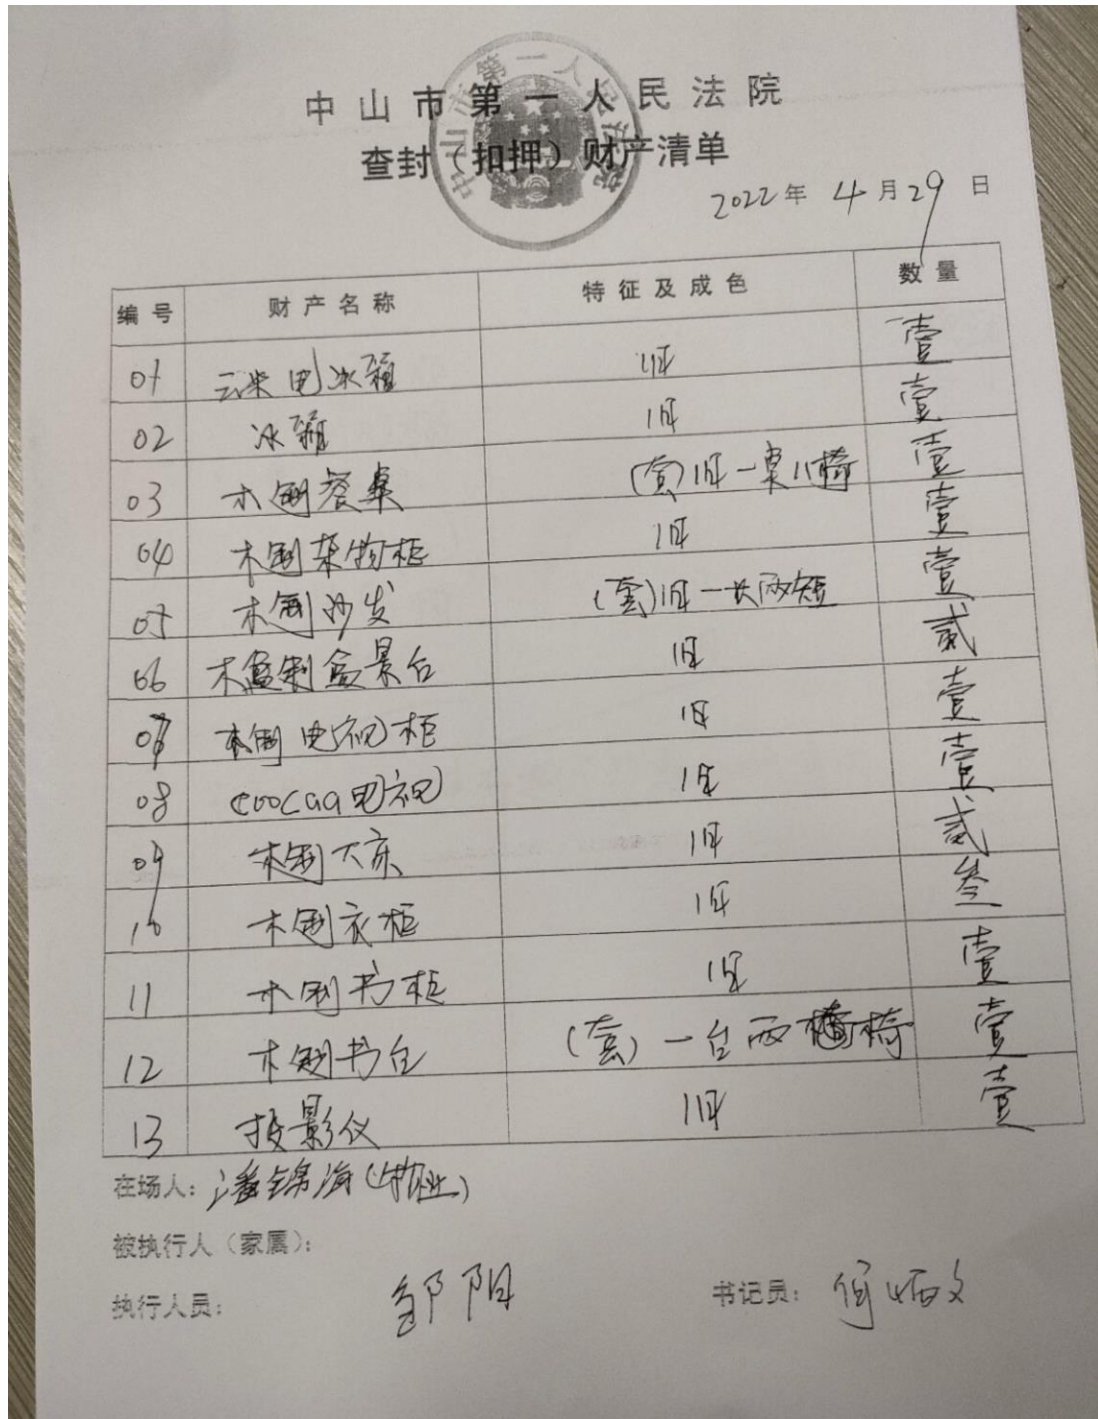 中山市第一人民法院
查封(扣押)财产清单
2022年 4月29日
编号 财产名称 特征及成色 数量
01 云米电冰箱 旧 壹
02 冰箱 旧 壹
03 木制餐桌 (套)旧一桌八椅 壹
04 木制杂物柜 旧 壹
05 木制沙发 (套)旧一长两短 壹
06 木制盆景台 旧 贰
07 木制电视柜 旧 壹
08 coocaa电视 旧 壹
09 木制大床 旧 贰
10 木制衣柜 旧 叁
11 木制书柜 旧 壹
12 木制书台 (套)一台两椅 壹
13 投影仪 旧 壹
在场人:潘锦海(物业)
被执行人(家属):
执行人员: 邹阳 书记员: 何炳文